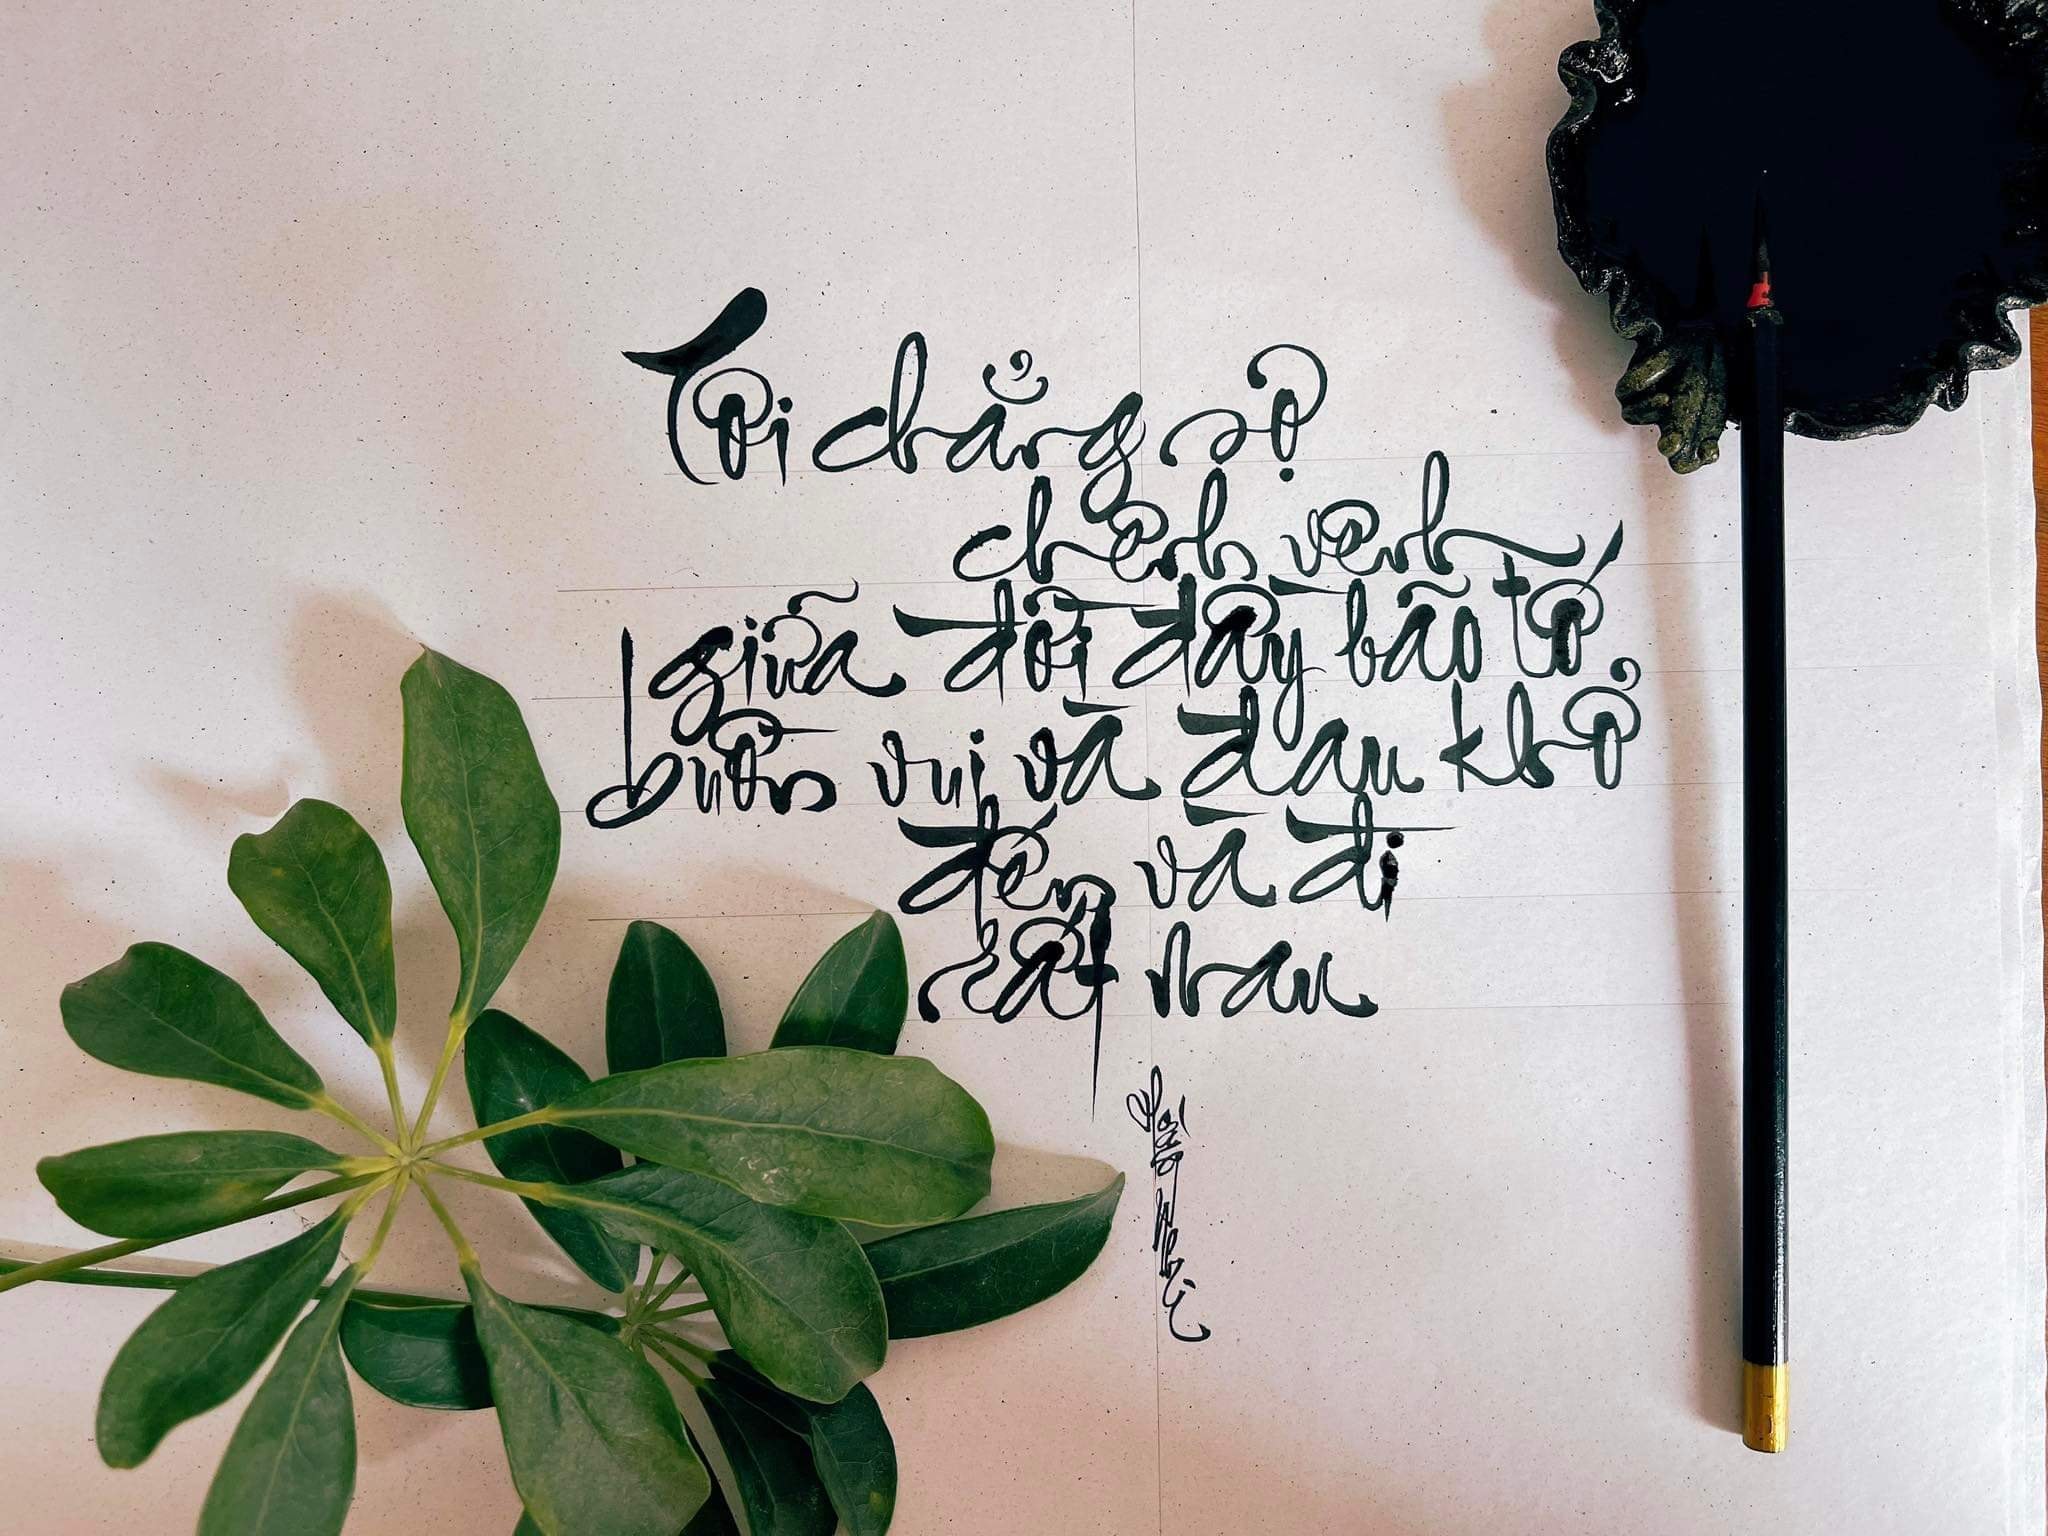 Tôi chẳng sợ
chênh vênh
giữa đời đầy bão tố
buồn vui và đau khổ
đến và đi
rất nhau
Hoàng Nhi